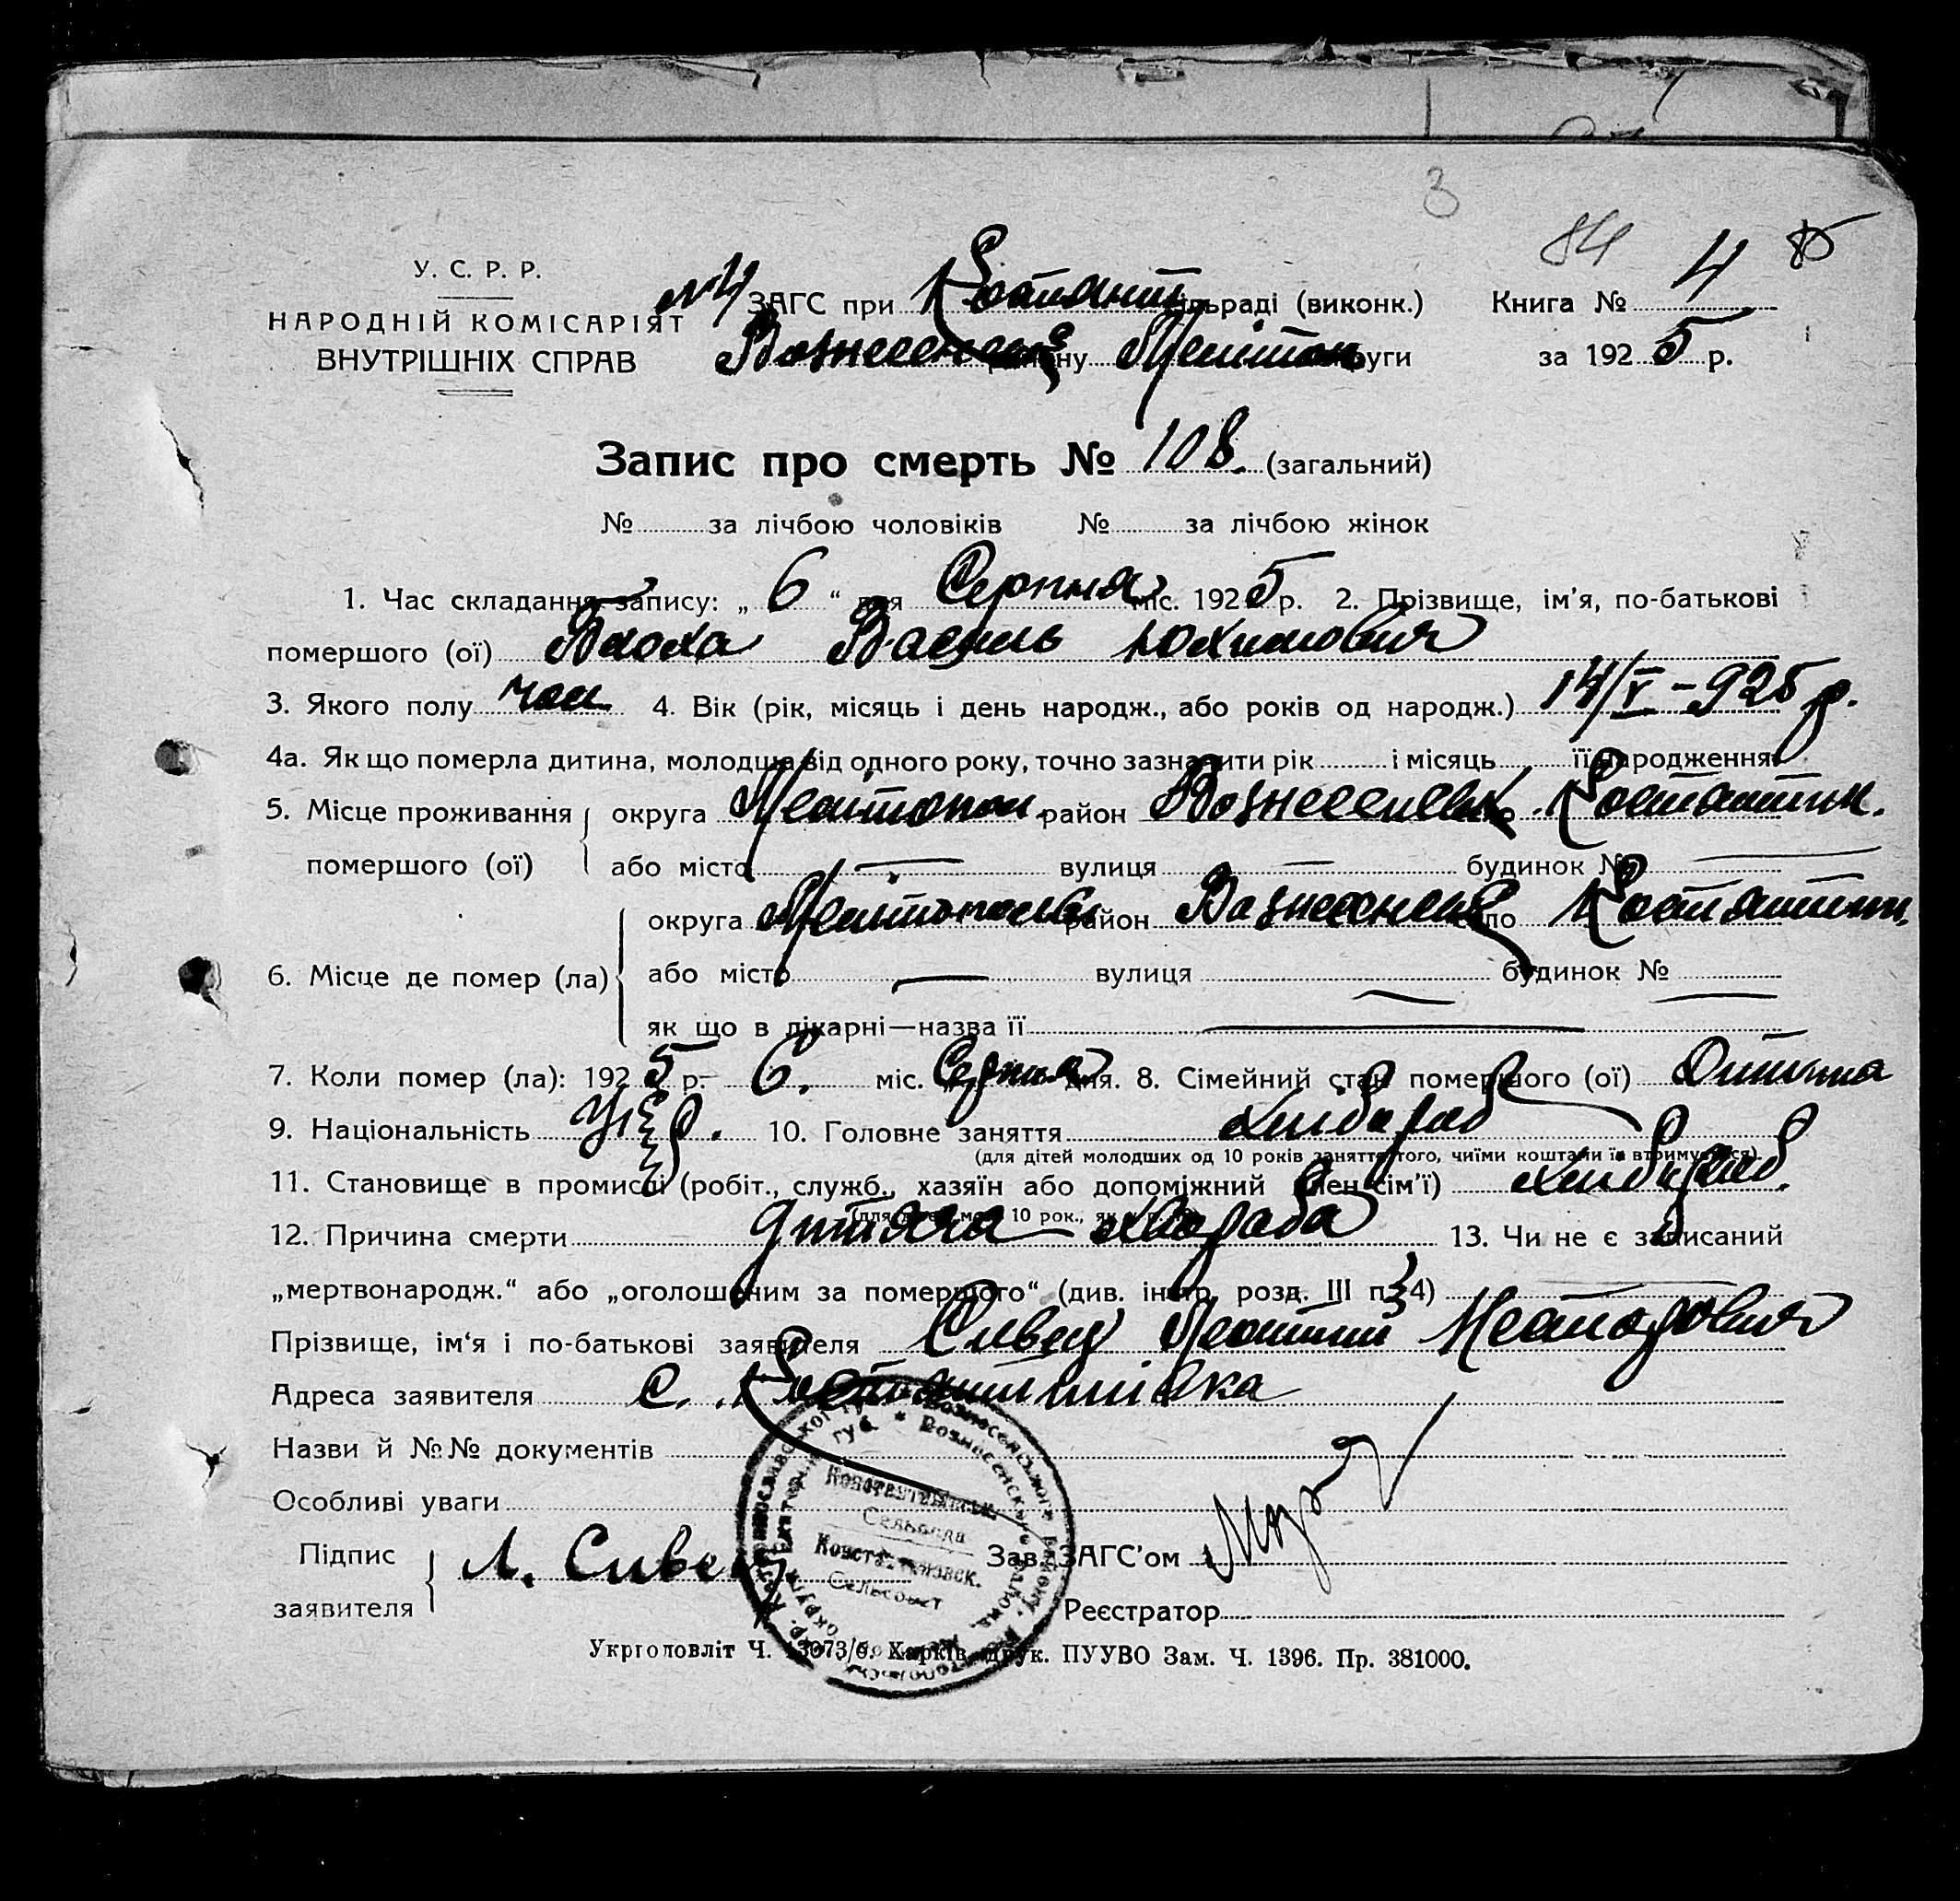 3
84 85
У. С. Р. Р.
НАРОДНІЙ КОМІСАРІЯТ
ВНУТРІШНІХ СПРАВ
№4 ЗАГС при Костянт сільраді (виконк.) Книга № 4
Вознесенськ району Мелітоп округи за 1925 р.
Запис про смерть № 108. (загальний)
№ за лічбою чоловіків № за лічбою жінок
1. Час складання запису: „ 6 “ дня Серпня міс. 1925 р. 2. Прізвище, ім’я, по-батькові
помершого (ої) Блоха Василь Юхимович
3. Якого полу чол 4. Вік (рік, місяць і день народж., або років од народж.) 14/V – 925 р.
4а. Як що померла дитина, молодша від одного року, точно зазначити рік і місяць її народження
5. Місце проживання округа Мелітопол район Вознесенськ Костянтин.
помершого (ої) або місто — вулиця — будинок № —
округа район Вознесенськ село Костянтин.
6. Місце де помер (ла) або місто — вулиця — будинок № —
як що в лікарні—назва її —
7. Коли помер (ла): 1925 р. 6. міс. Серпня дня. 8. Сімейний стан помершого (ої)
9. Національність Укр. 10. Головне заняття хлібароб
(для дітей молодших од 10 років заняття того, чиїми коштами їх втримувався).
11. Становище в промислі (робіт., служб., хазяїн або допоміжний член сім’ї) хлібороб.
12. Причина смерти дитяча хвороба 13. Чи не є записаний
„мертвонародж.“ або „оголошеним за помершого“ (див. інстр. розд. III п. 3 4)
Прізвище, ім‘я і по-батькові заявителя Сивец
Адреса заявителя с. Костянтинівка
Назви й №№ документів
Особливі уваги
Підпис Л. Сивец Зав. ЗАГС’ом
заявителя Реєстратор
Сельрада
Сельсовет
Укрголовліт Ч. Харків, друк. ПУУВО Зам. Ч. 1396. Пр. 381000.